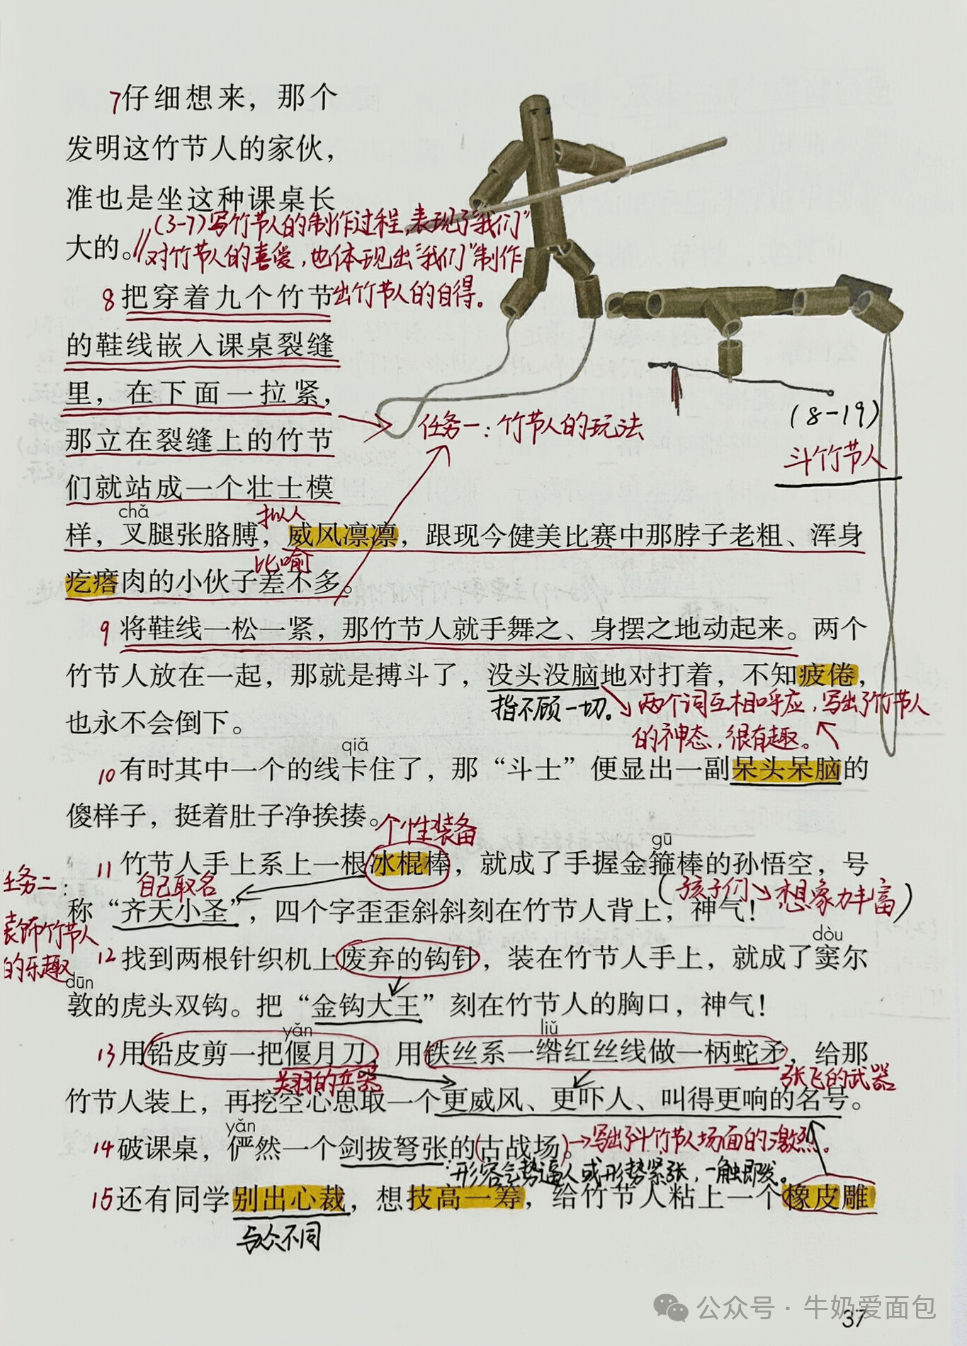 7仔细想来，那个
发明这竹节人的家伙，
准也是坐这种课桌长
大的。//(3-7)写竹节人的制作过程，表现了“我们”
对竹节人的喜爱，也体现出“我们”制作
出竹节人的自得。
8把穿着九个竹节
的鞋线嵌入课桌裂缝
里，在下面一拉紧，
那立在裂缝上的竹节
任务一：竹节人的玩法
(8-19)
斗竹节人
们就站成一个壮士模
chǎ
拟人
样，叉腿张胳膊，威风凛凛，跟现今健美比赛中那脖子老粗、浑身
比喻
疙瘩肉的小伙子差不多。
9将鞋线一松一紧，那竹节人就手舞之、身摆之地动起来。两个
竹节人放在一起，那就是搏斗了，没头没脑地对打着，不知疲倦，
指不顾一切。
两个词互相呼应，写出了竹节人
的神态，很有趣。
也永不会倒下。
qiǎ
10有时其中一个的线卡住了，那“斗士”便显出一副呆头呆脑的
傻样子，挺着肚子净挨揍。
个性装备
gū
11竹节人手上系上一根冰棍棒，就成了手握金箍棒的孙悟空，号
任务二：
装饰竹节人
的乐趣
自己取名
(孩子们→想象力丰富)
称“齐天小圣”，四个字歪歪斜斜刻在竹节人背上，神气！
dòu
12找到两根针织机上废弃的钩针，装在竹节人手上，就成了窦尔
dūn
敦的虎头双钩。把“金钩大王”刻在竹节人的胸口，神气！
yǎn
liǔ
13用铅皮剪一把偃月刀，用铁丝系一绺红丝线做一柄蛇矛，给那
关羽的兵器
张飞的武器
竹节人装上，再挖空心思取一个更威风、更吓人、叫得更响的名号。
yǎn
14破课桌，俨然一个剑拔弩张的(古战场)。→写出了斗竹节人场面的激烈。
：形容气势逼人或形势紧张，一触即发。
15还有同学别出心裁，想技高一筹，给竹节人粘上一个橡皮雕
与众不同
公众号·牛奶爱面包
37